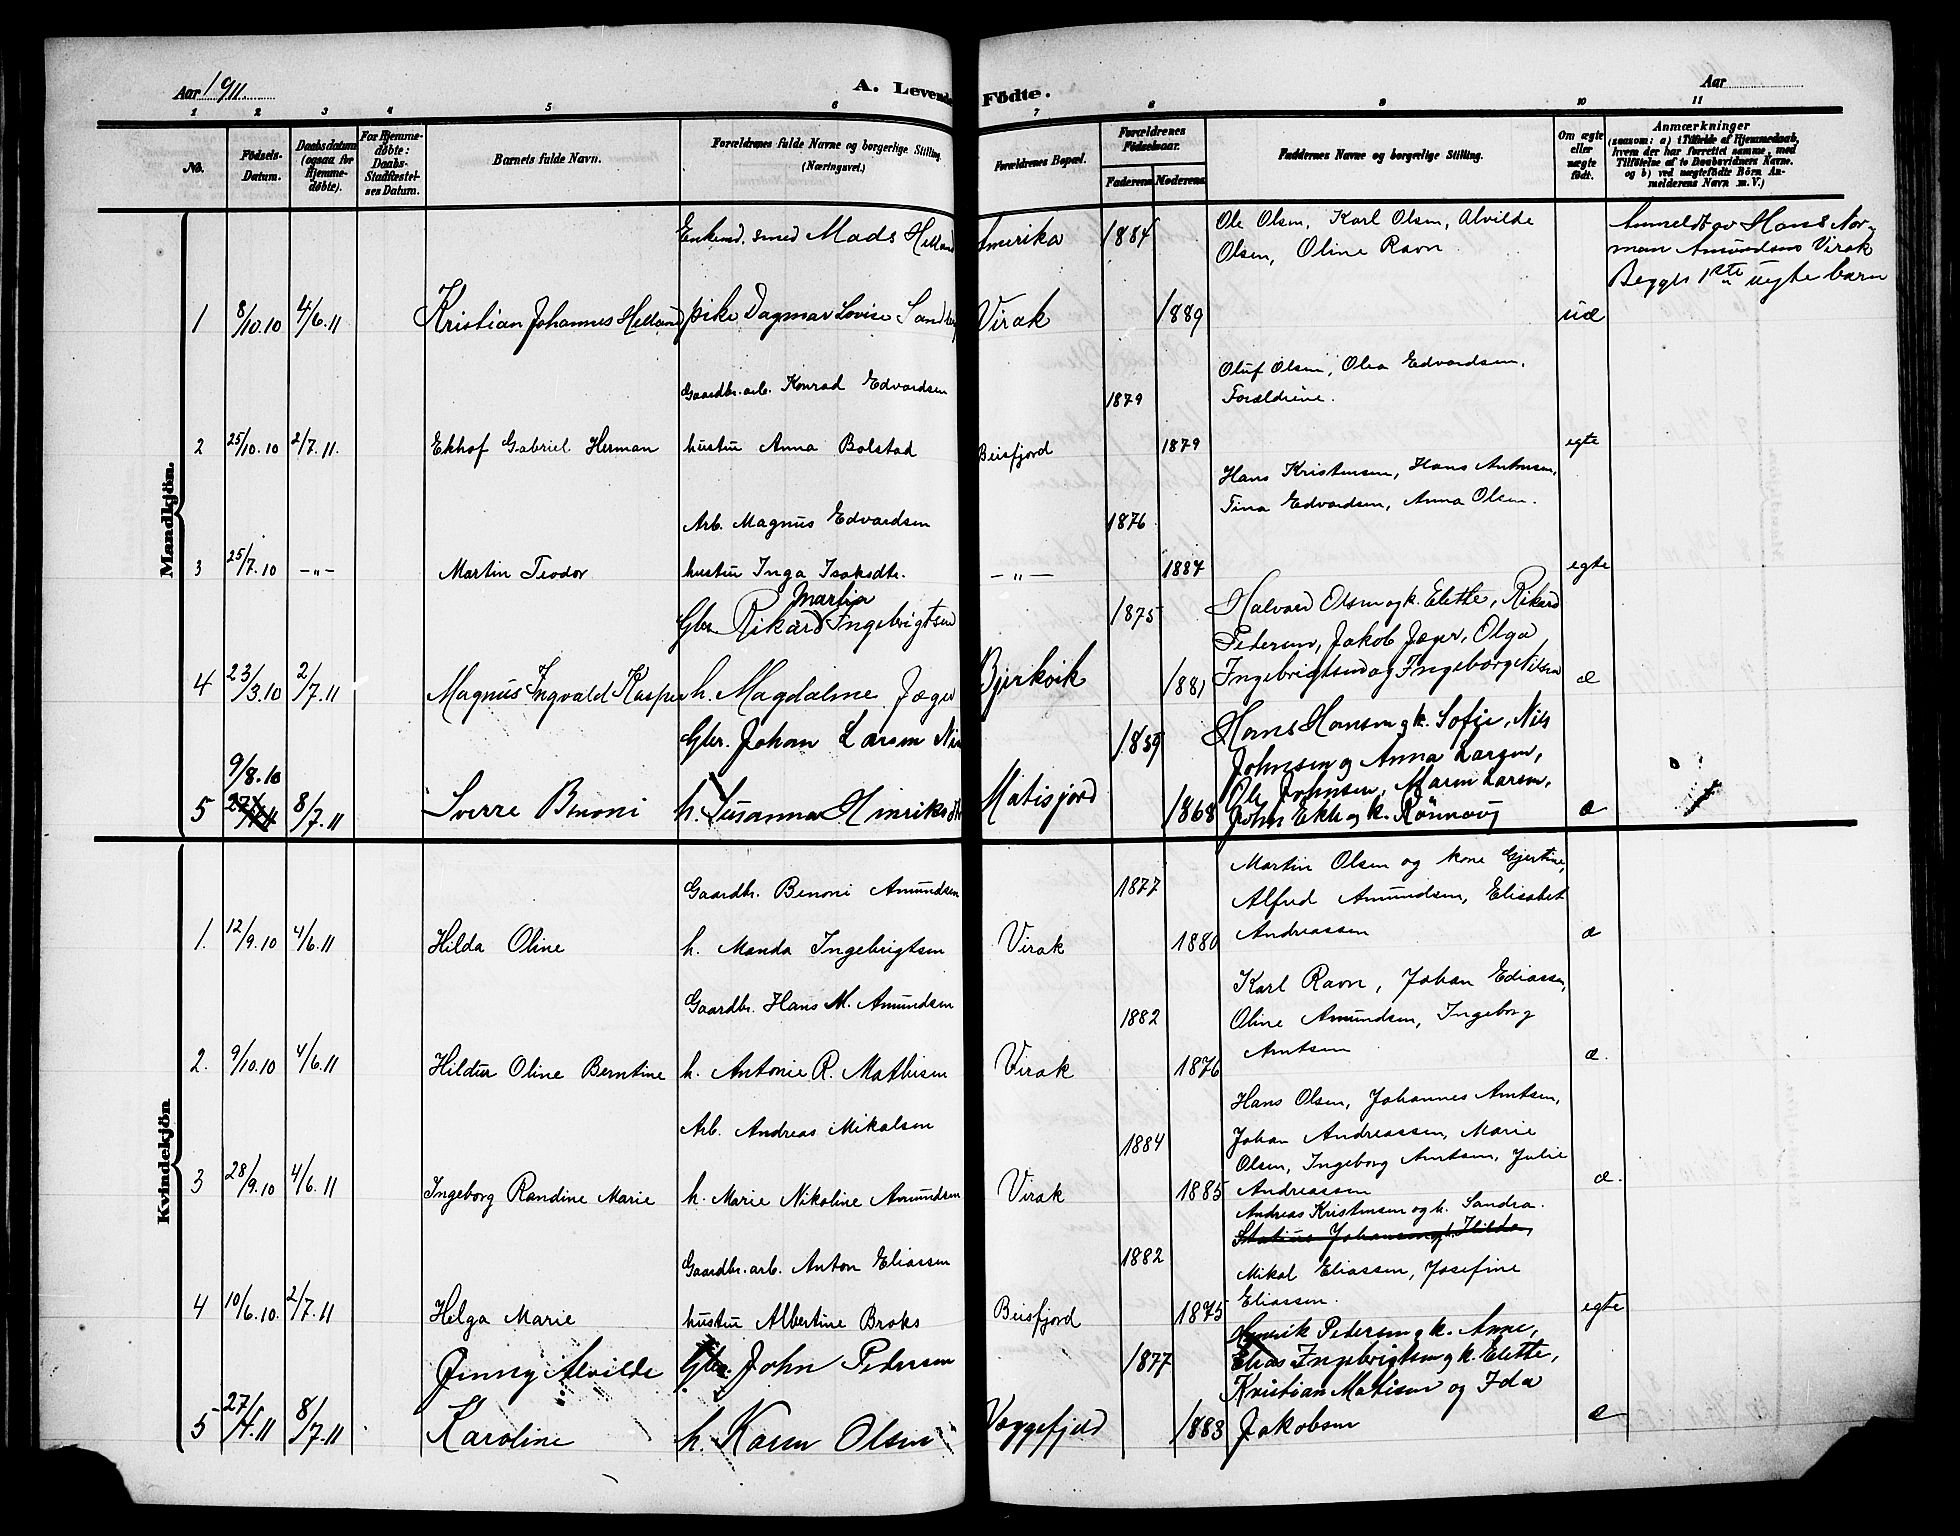 Aar 1911.
A. Levende Födte.
Aar
1 2 3 4 5 6 7 8 9 10 11
No.
Födsels-Datum.
Daabsdatum (ogsaa for Hjemme-døbte).
For Hjemme-døbte: Daabs-Stadfæstel-ses Datum.
Barnets fulde Navn.
Forældrenes fulde Navne og borgerlige Stilling. (Næringsvei.)
Forældrenes Bopæl.
Forældrenes Födselsaar.
Faderens Moderens
Faddernes Navne og borgerlige Stilling.
Om ægte eller uægte födt.
Anmærkninger
(saasom: a) i Tilfælde af Hjemmedaab,
hvem der har forrettet samme, med
Tilføielse af to Daabsvidners Navne.
og b) ved uægtefödte Börn An-
melderens Navn m. V.)
Mandkjön.
Enkemd. smed Mads Helland Amerika 1884 Ole Olsen, Karl Olsen, Alvilde
Olsen, Oline Ravn
Anmeldt av Hans Nor-
man Amundsen Virak
Begges 1ste uegte barn
1 8/10.10 4/6.11 Kristian Johannes Helland pike Dagmar Lovise Sandberg Virak 1889 uæ
Gaardbr. arb. Konrad Edvardsen 1879 Oluf Olsen, Olea Edvardsen,
Forældrene.
2 25/10.10 2/7.11. Ekhof Gabriel Herman hustru Anna Bolstad Beisfjord 1879 egte
Arb. Magnus Edvardsen 1876 Hans Kristensen, Hans Antonsen,
Tina Edvardsen, Anna Olsen.
3 25/7.10 -"- Martin Teodor hustru Inga Isaksdtr. -"- 1884 egte
Martin
Gbr. Rikard Ingebrigtsen 1875 Halvard Olsen og k. Elette, Rikard
Pedersen, Jakob Jæger, Olga
4 23/3.10 2/7.11 Magnus Ingvald Kasper h. Magdalene Jæger Bjerkvik 1881 Ingebrigtsen og Ingeborg Nilsen æ
Gbr. Johan Larsen 1859 Hans Hansen og k. Sofie, Nils
Johnsen og Anna Larsen,
9/8.10
5 8/7.11 Sverre Benoni h. Susanna Hinriksdtr Matisjord 1868 Ole Johnsen, Maren Larsen,
John Ekle og k. Rønnaug æ
Kvindekjön.
Gaardbr. Benoni Amundsen 1877 Martin Olsen og kone Gjertine,
Alfred Amundsen, Elisabet
1. 12/9.10 4/6.11 Hilda Oline h. Manda Ingebrigtsen Virak 1880 Andreassen æ
Gaardbr. Hans M. Amundsen 1882 Karl Ravn, Johan Ediassen,
Oline Amundsen, Ingeborg
2. 9/10.10 4/6.11 Hildur Oline Berntine h. Antonie R. Mathisen Virak 1876 Amtsen æ.
Arb. Andreas Mikalsen 1884 Hans Olsen, Johannes Amtsen,
Johan Andreassen, Marie
Olsen, Ingeborg Amtsen, Julie
3 28/9.10 4/6.11 Ingeborg Randine Marie h. Marie Nikoline Amundsen Virak 1885 Andreassen æ.
Gaardbr. arb. Anton Eliassen 1882 Andreas Kristensen og h. Sandra.
Mikal Eliassen, Josefine
4 10/6.10. 2/7.11 Helga Marie hustru Albertine Broks Beisfjord 1875 Eliassen. egte
Jenny Alvilde Gbr. John Pedersen 1877 Henrik Pedersen og k. Anne,
Elias Ingebrigtsen og k. Elette,
Kristian Matisen og Ida
5 27/4.11 8/7.11 Karoline h. Karen Olsen Væggefjeld 1883 Jakobsen æ